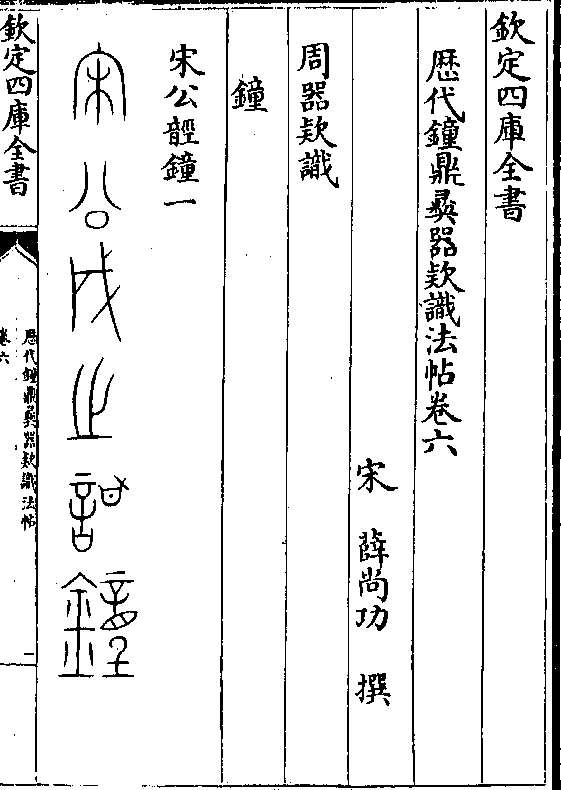 欽定四庫全書
歴代鐘鼎彝器欵識法帖卷六
宋 薛尚功 撰
周器欵識
鐘
宋公䪫鐘一
宋公戌之訶鐘
欽定四庫全書
歴代鐘鼎彝器欵識法帖
卷六
一